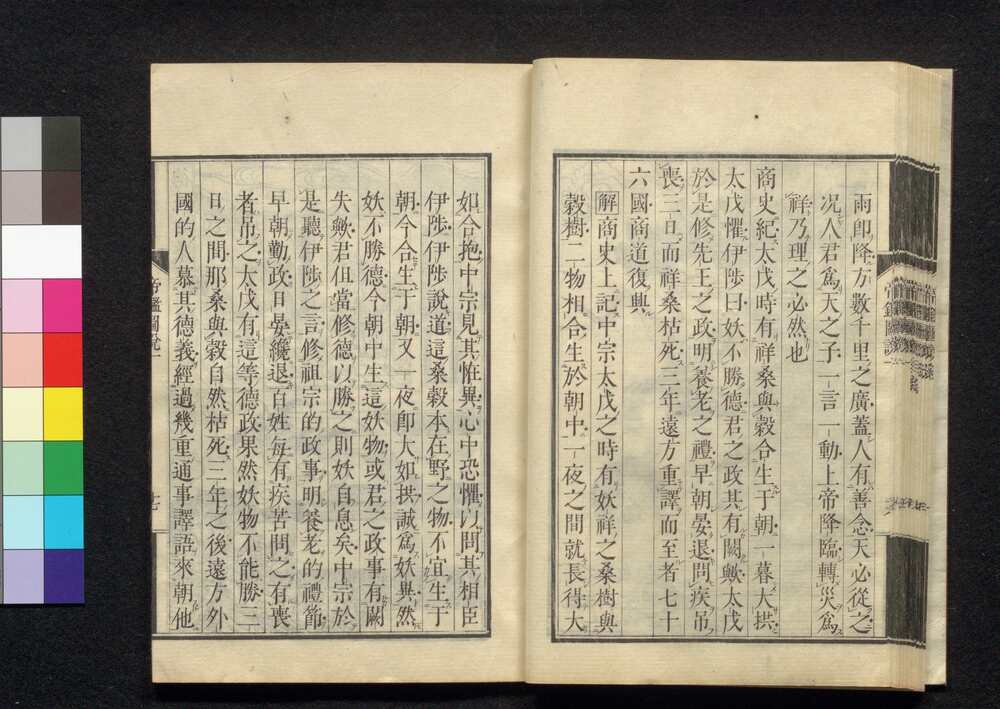 雨卽降方數千里之廣蓋人有善念天必從之
况人君爲天之子一言一動上帝降臨轉災爲
祥乃理之必然也
商史紀太戊時有祥桑與榖合生于朝一暮大拱
太戊懼伊陟曰妖不勝德君之政其有闕歟太戊
於是修先王之政明養老之禮早朝晏退問疾吊
喪三日而祥桑枯死三年遠方重譯而至者七十
六國商道復興
解商史上記中宗太戊之時有妖祥之桑樹與
榖樹二物相合生於朝中一夜之間就長得大
如合抱中宗見其恠異心中恐懼以問其相臣
伊陟伊陟說道這桑榖本在野之物不宜生于
朝今合生于朝又一夜卽大如拱誠爲妖異然
妖不勝德今朝中生這妖物或君之政事有闕
失歟君但當修德以勝之則妖自息矣中宗於
是聽伊陟之言修祖宗的政事明養老的禮節
早朝勤政日晏纔退百姓每有疾苦問之有喪
者吊之太戊有這等德政果然妖物不能勝三
日之間那桑與榖自然枯死三年之後遠方外
國的人慕其德義經過幾重通事譯語來朝他
帝鑑圖說一
十七